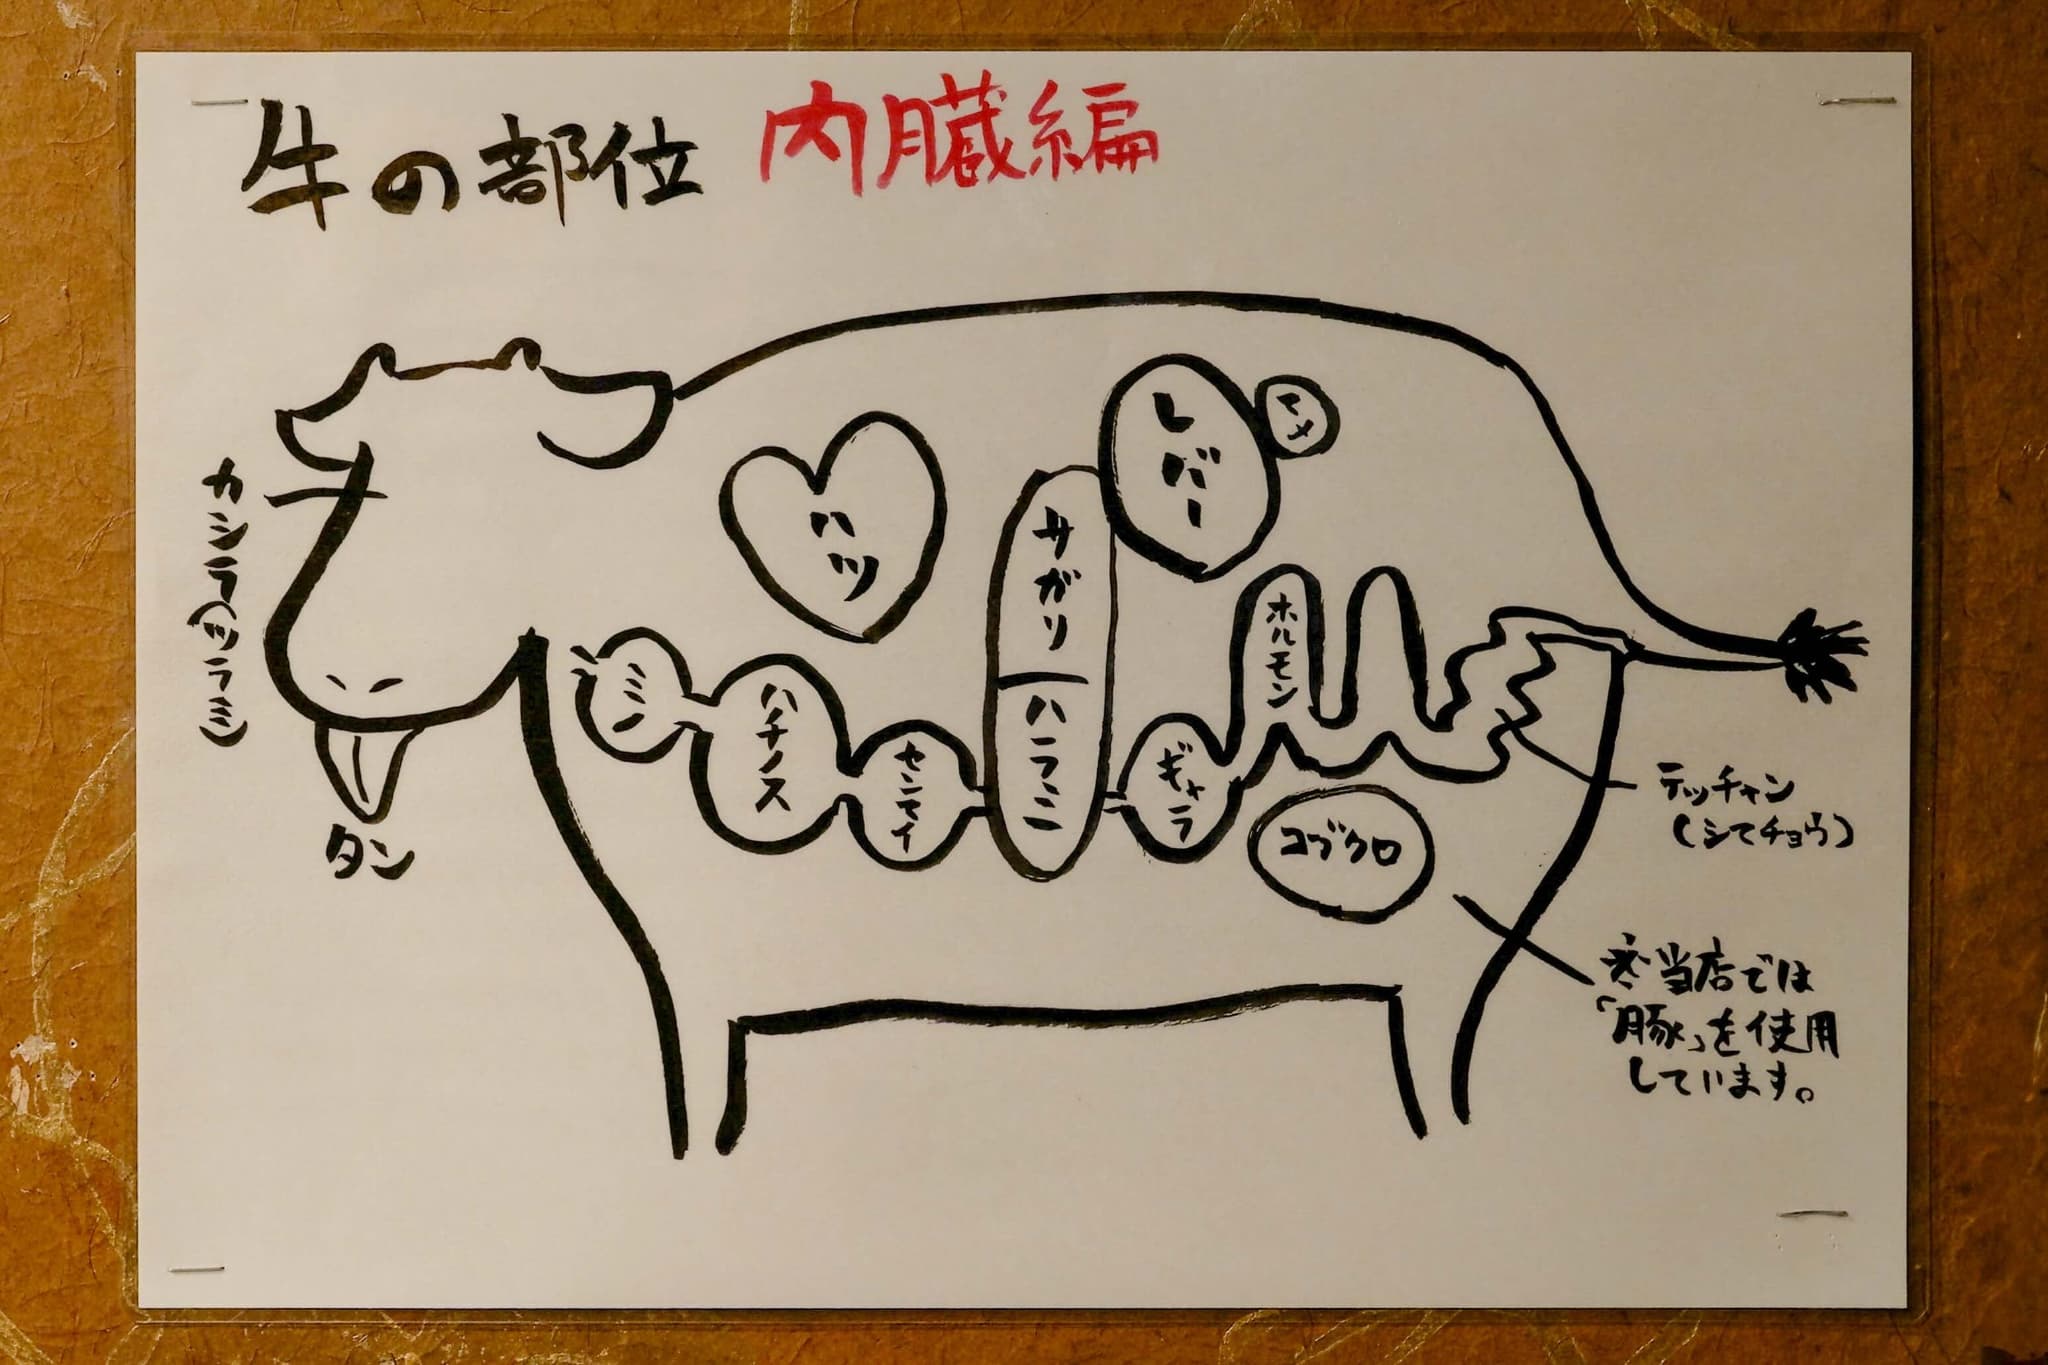 牛の部位 内臓編
カシラ(ツラミ)
タン
ミノ
ハチノス
センマイ
ハツ
サガリ
ハラミ
レバー
マメ
ギャラ
ホルモン
コブクロ
テッチャン
(シマチョウ)
※当店では
「豚」を使用
しています。